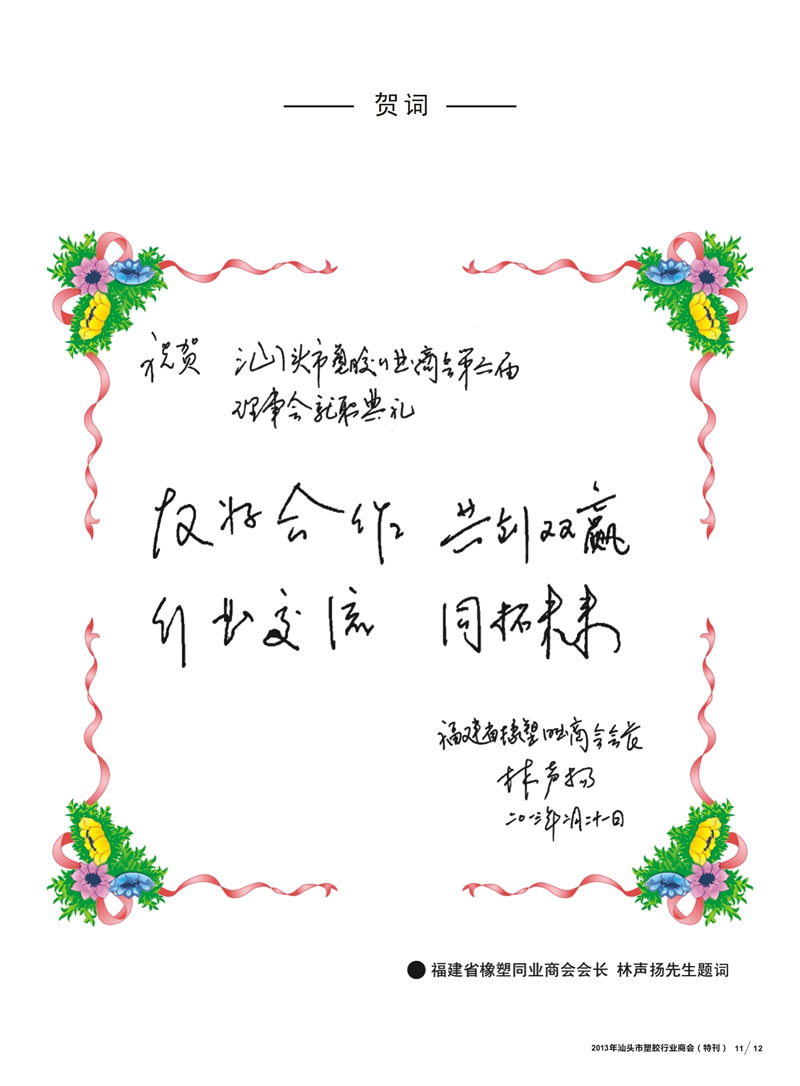 贺词
祝贺 汕头市塑胶行业商会第二届
理事会就职典礼
友好合作 共创双赢
行业交流 同拓未来
福建省橡塑同业商会会长
林声扬
二〇一三年二月二十一日
福建省橡塑同业商会会长 林声扬先生题词
2013年汕头市塑胶行业商会（特刊） 11/12